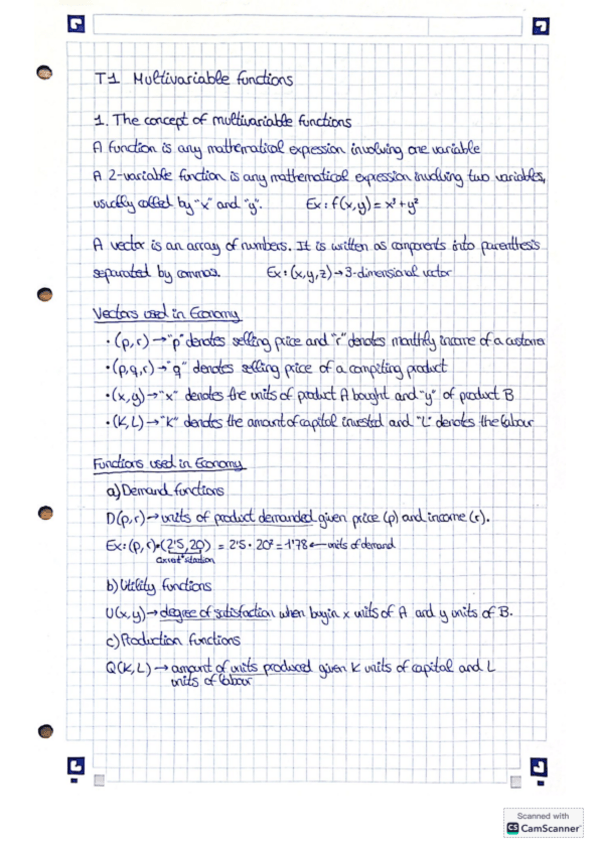 T1 Multivariable functions
1. The concept of multivariable functions
A function is any mathematical expression involving one variable
A 2-variable function is any mathematical expression involving two variables,
usually called by "x" and "y". Ex: f(x,y) = x³+y²
A vector is an array of numbers. It is written as components into parenthesis
separated by commas. Ex: (x,y,z) → 3-dimensional vector
Vectors used in Economy
• (p,r) → "p" denotes selling price and "r" denotes monthly income of a customer
• (p,q,r) → "q" denotes selling price of a competing product
• (x,y) → "x" denotes the units of product A bought and "y" of product B
• (K,L) → "K" denotes the amount of capital invested and "L" denotes the labour
Functions used in Economy
a) Demand functions
D(p,r) → units of product demanded given price (p) and income (r).
Ex: (p,r) (2'5,20) = 2'5 · 20² = 1'78 ← units of demand
b) Utility functions
U(x,y) → degree of satisfaction when buyin x units of A and y units of B.
c) Production functions
Q(K,L) → amount of units produced given K units of capital and L
units of labour
Scanned with
CS CamScanner